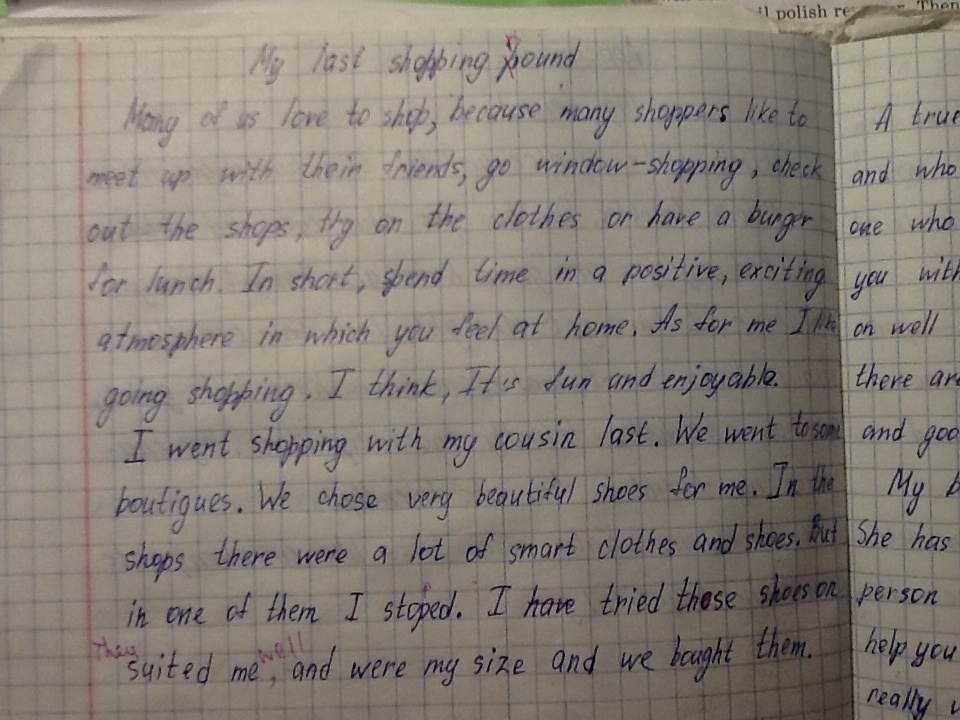 il polish Then
My last shopping Round
Many of us love to shop, because many shoppers like to
meet up with their friends, go window-shopping, check
out the shops, try on the clothes or have a burger
for lunch. In short, spend time in a positive, exciting
atmosphere in which you feel at home. As for me I like
going shopping. I think, It's fun and enjoyable.
I went shopping with my cousin last. We went to some
boutigues. We chose very beautiful shoes for me. In the
shops there were a lot of smart clothes and shoes. But
in one of them I stopped. I have tried those shoes on.
They suited me well, and were my size and we bought them.
A true
and who
one who
you with
on well
there are
and goo
My b
She has
person
help you
really